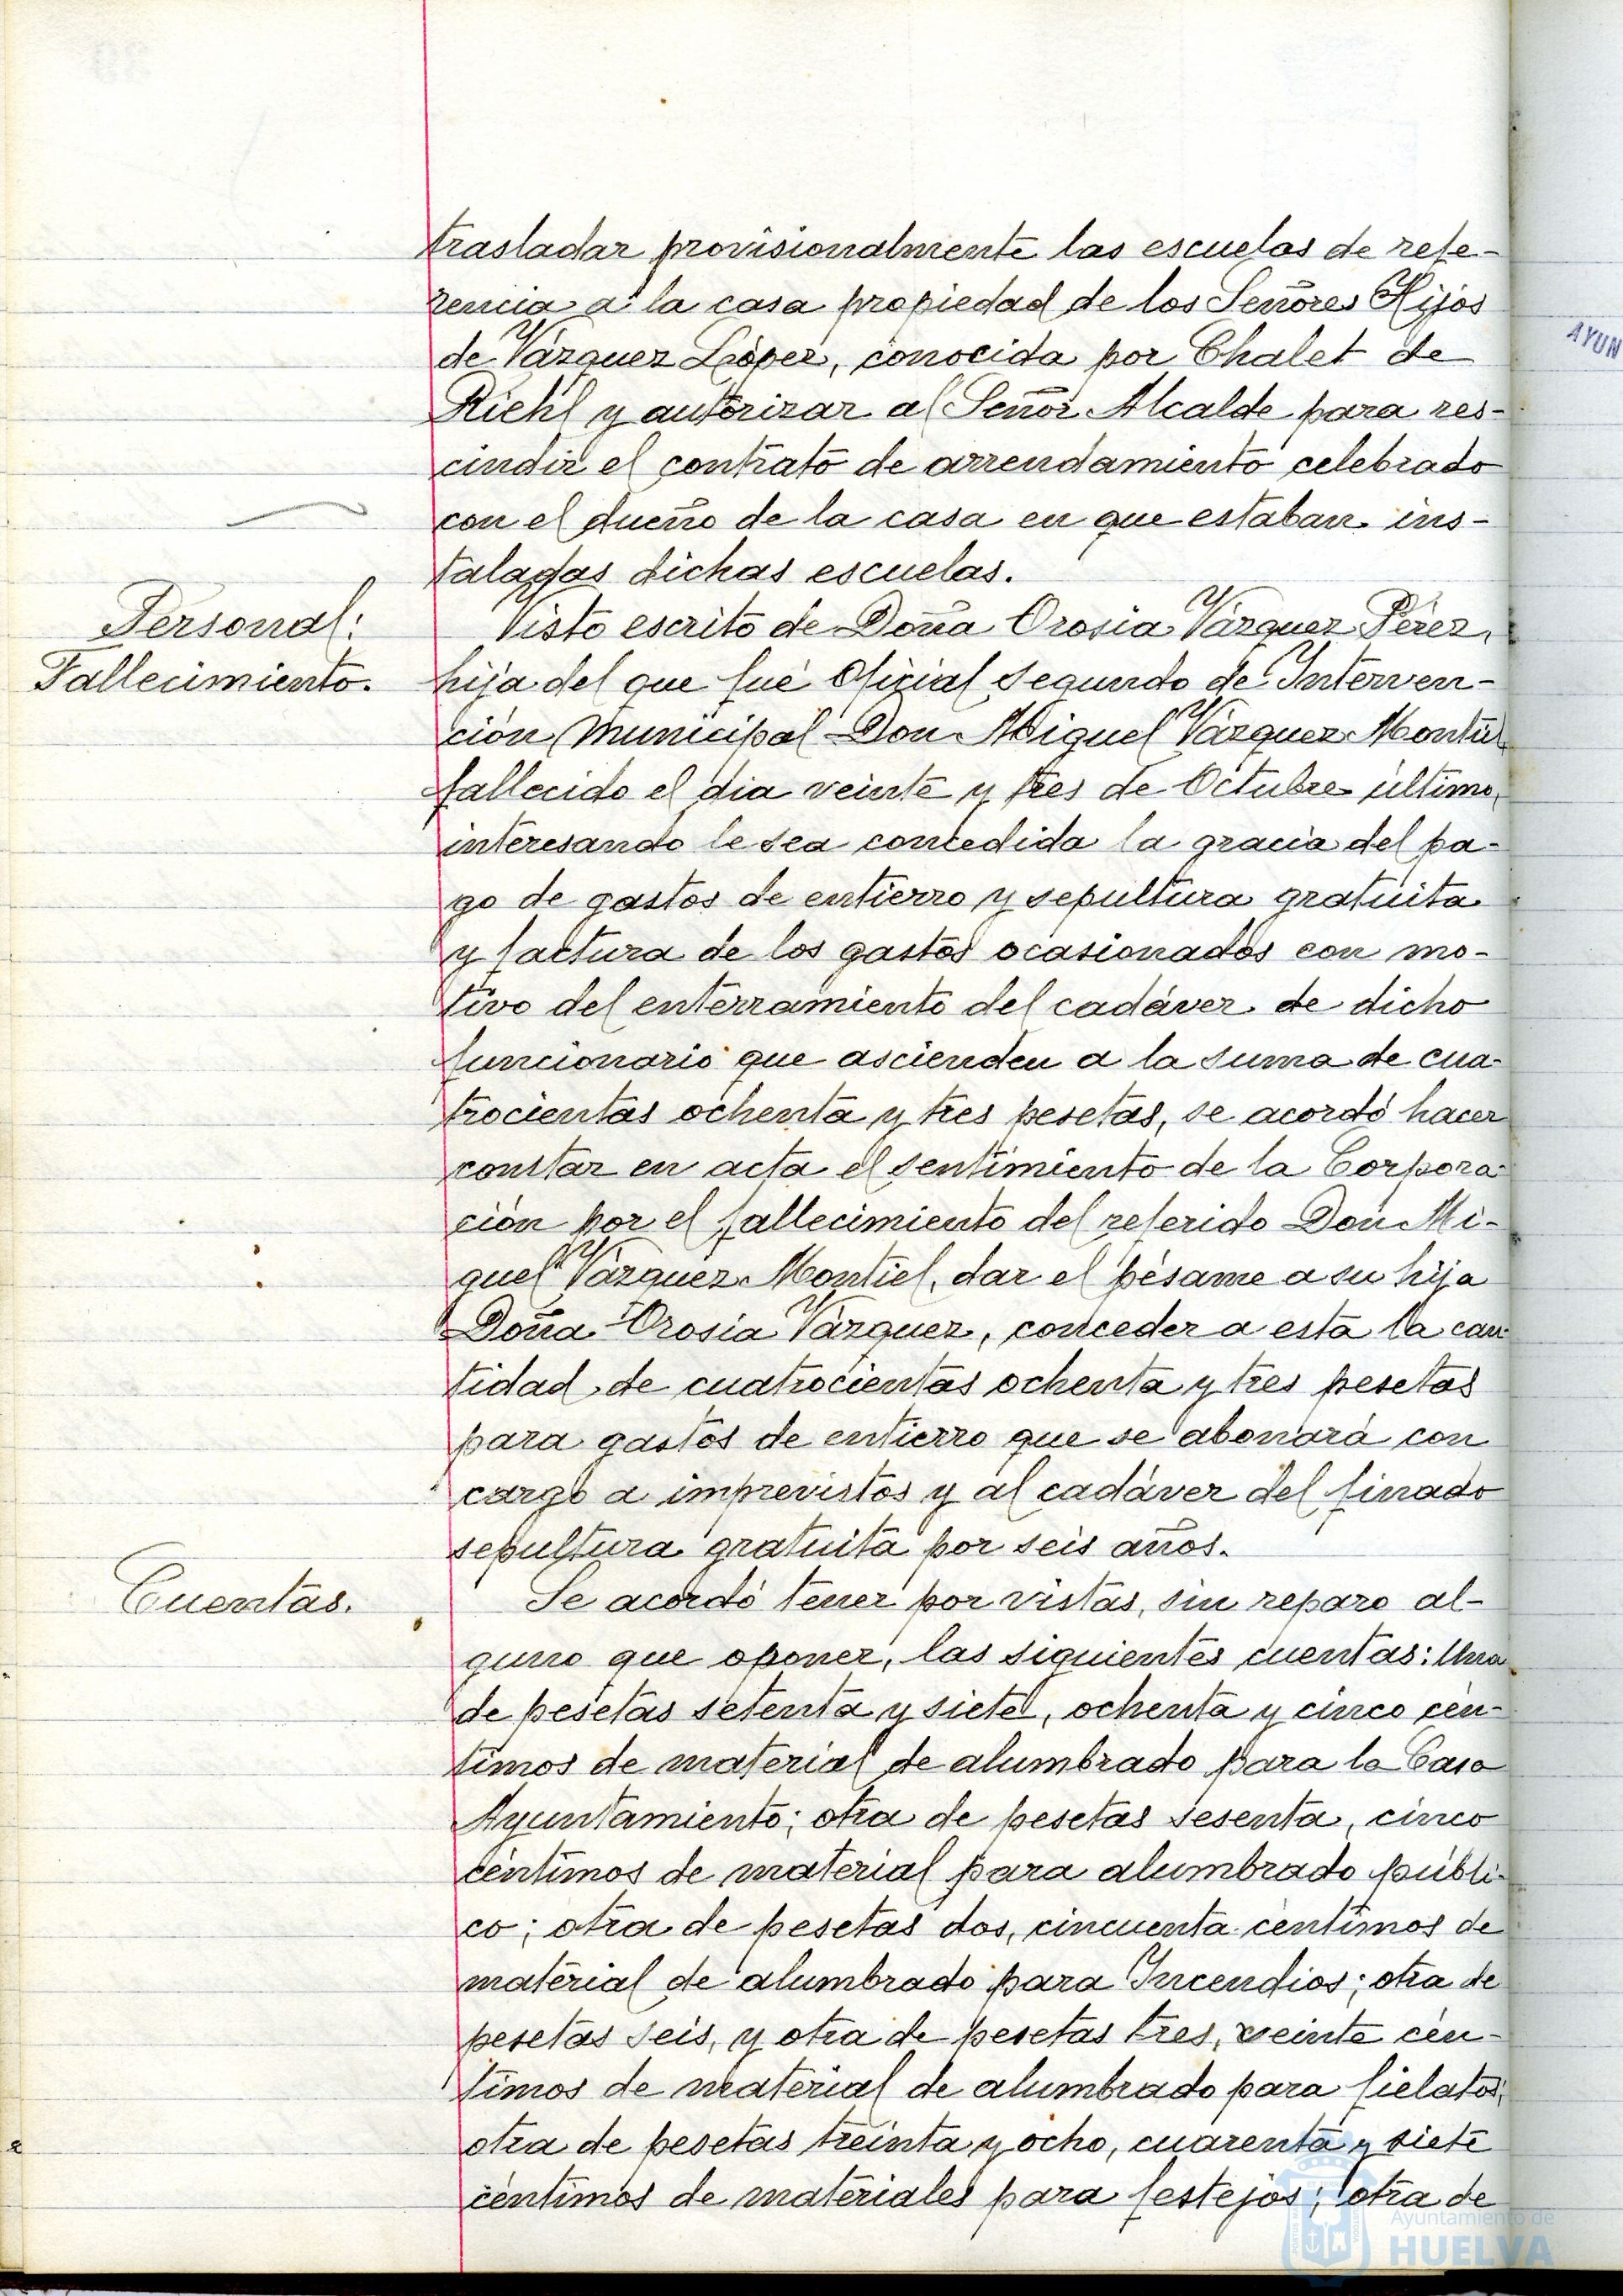 trasladar provisionalmente las escuelas de refe-
rencia a la casa propiedad de los Señores Hijos
de Vázquez López, conocida por Chalet de
Riehl y autorizar al Señor Alcalde para res-
cindir el contrato de arrendamiento celebrado
con el dueño de la casa en que estaban ins-
taladas dichas escuelas.
Personal:
Fallecimiento.
Visto escrito de Doña Orosia Vázquez Pérez,
hija del que fué Oficial segundo de Interven-
ción Municipal Don Miguel Vázquez Montiel
fallecido el dia veinte y tres de Octubre último,
interesando le sea concedida la gracia del pa-
go de gastos de entierro y sepultura gratuita
y factura de los gastos ocasionados con mo-
tivo del enterramiento del cadáver de dicho
funcionario que ascienden a la suma de cua-
trocientas ochenta y tres pesetas, se acordó hacer
constar en acta el sentimiento de la Corpora-
ción por el fallecimiento del referido Don Mi-
guel Vázquez Montiel, dar el pésame a su hija
Doña Orosia Vázquez, conceder a esta la can-
tidad de cuatrocientas ochenta y tres pesetas
para gastos de entierro que se abonará con
cargo a imprevistos y al cadáver del finado
sepultura gratuita por seis años.
Cuentas.
Se acordó tener por vistas, sin reparo al-
guno que oponer, las siguientes cuentas: Una
de pesetas setenta y siete, ochenta y cinco cén-
timos de material de alumbrado para la Casa
Ayuntamiento; otra de pesetas sesenta, cinco
céntimos de material para alumbrado públi-
co; otra de pesetas dos, cincuenta centimos de
material de alumbrado para Incendios; otra de
pesetas seis, y otra de pesetas tres, veinte cén-
timos de material de alumbrado para fielatos;
otra de pesetas treinta y ocho, cuarenta y siete
céntimos de materiales para festejos; otra de
AYUN
Ayuntamiento de
HUELVA